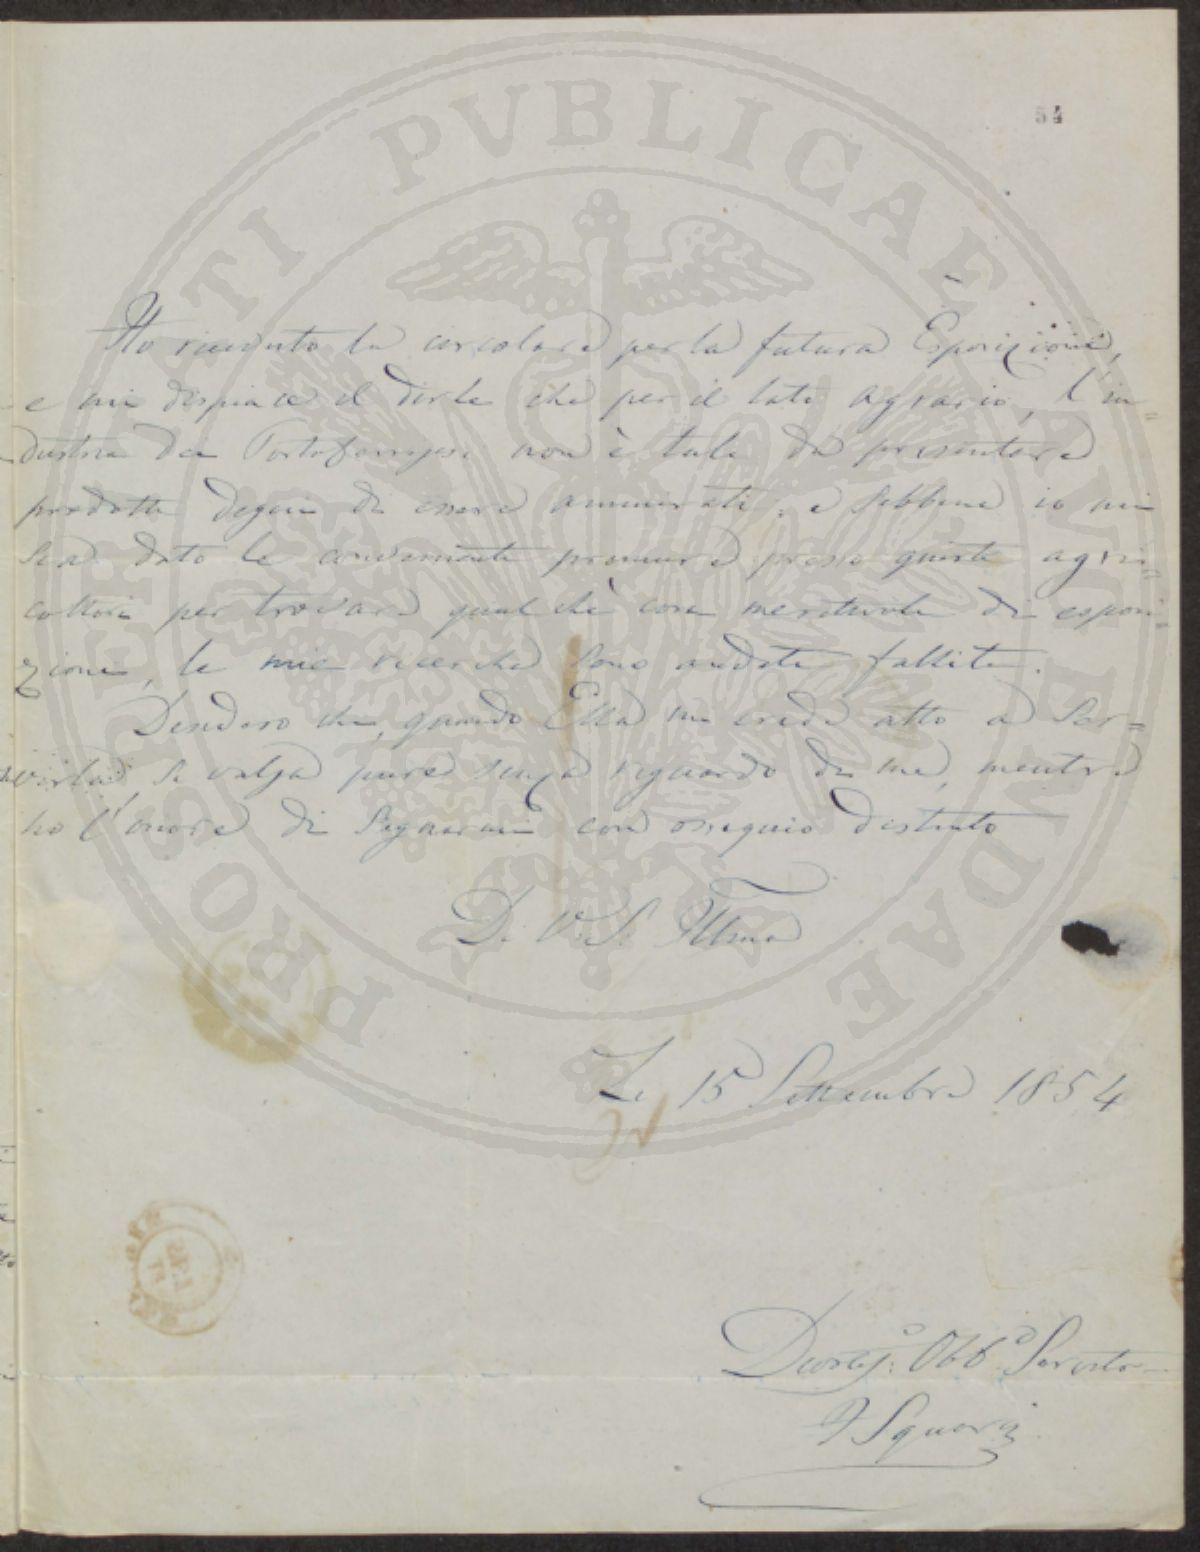 54
Ho ricevuto la circolare per la futura Esposizione,
e mi dispiace il dirle che per il lato agrario, l'in=
dustria dei Portoferrajesi non è tale da presentare
prodotti degni di essere ammirati; e sebbene io mi
sia dato le convenienti premure presso questi agri=
coltori per trovare qualche cosa meritevole di esposi=
zione, le mie ricerche sono andate fallite.
Desidero che, quando Ella mi creda atto a ser=
virla, si valga pure senza riguardo di me, mentre
ho l'onore di segnarmi con ossequio distinto
Di V. S. Illma
Li 15 Settembre 1854
Devotis: Obb. Servitore
Squarci
PROSPERITATI PVBLICAE AVGENDAE